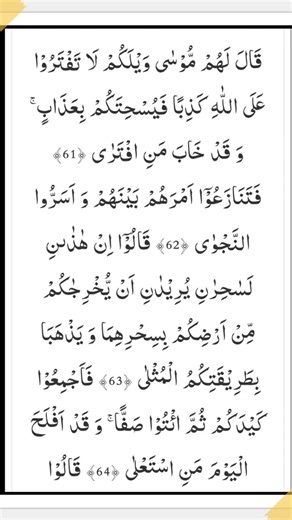 قَالَ لَهُمْ مُّوْسٰى وَيْلَكُمْ لَا تَفْتَرُوْا
عَلَى اللّٰهِ كَذِبًا فَيُسْحِتَكُمْ بِعَذَابٍ ۚ
وَ قَدْ خَابَ مَنِ افْتَرٰى ﴿61﴾
فَتَنَازَعُوْۤا اَمْرَهُمْ بَيْنَهُمْ وَ اَسَرُّوا
النَّجْوٰى ﴿62﴾ قَالُوْۤا اِنْ هٰذٰىنِ
لَسٰحِرٰنِ يُرِيْدٰنِ اَنْ يُّخْرِجٰكُمْ
مِّنْ اَرْضِكُمْ بِسِحْرِهِمَا وَ يَذْهَبَا
بِطَرِيْقَتِكُمُ الْمُثْلٰى ﴿63﴾ فَاَجْمِعُوْا
كَيْدَكُمْ ثُمَّ ائْتُوْا صَفًّا ۚ وَ قَدْ اَفْلَحَ
الْيَوْمَ مَنِ اسْتَعْلٰى ﴿64﴾ قَالُوْا